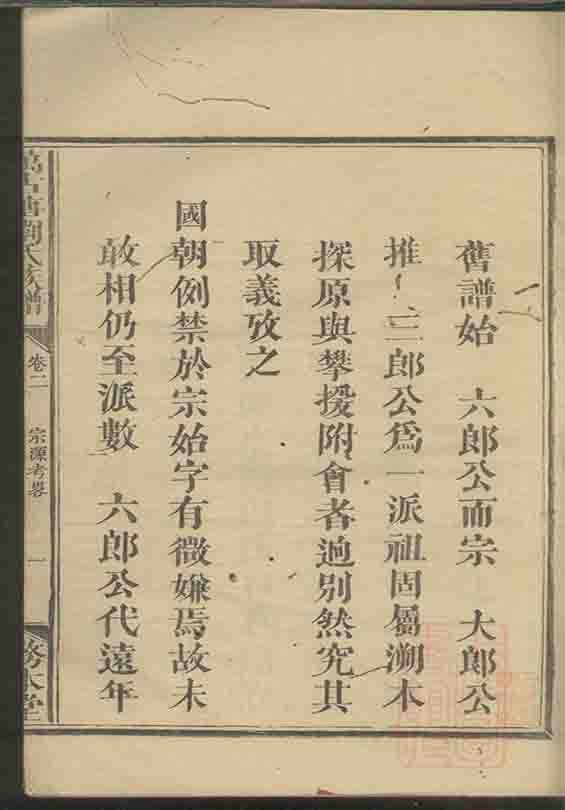 舊譜始　六郎公而宗　大郎公
推　三郎公爲一派祖固屬溯本
探原與攀援附會者逈別然究其
取義攷之
國朝例禁於宗始字有微嫌焉故未
敢相仍至派數　六郎公代遠年
劉氏族譜
卷二
宗源考畧
一
務本堂